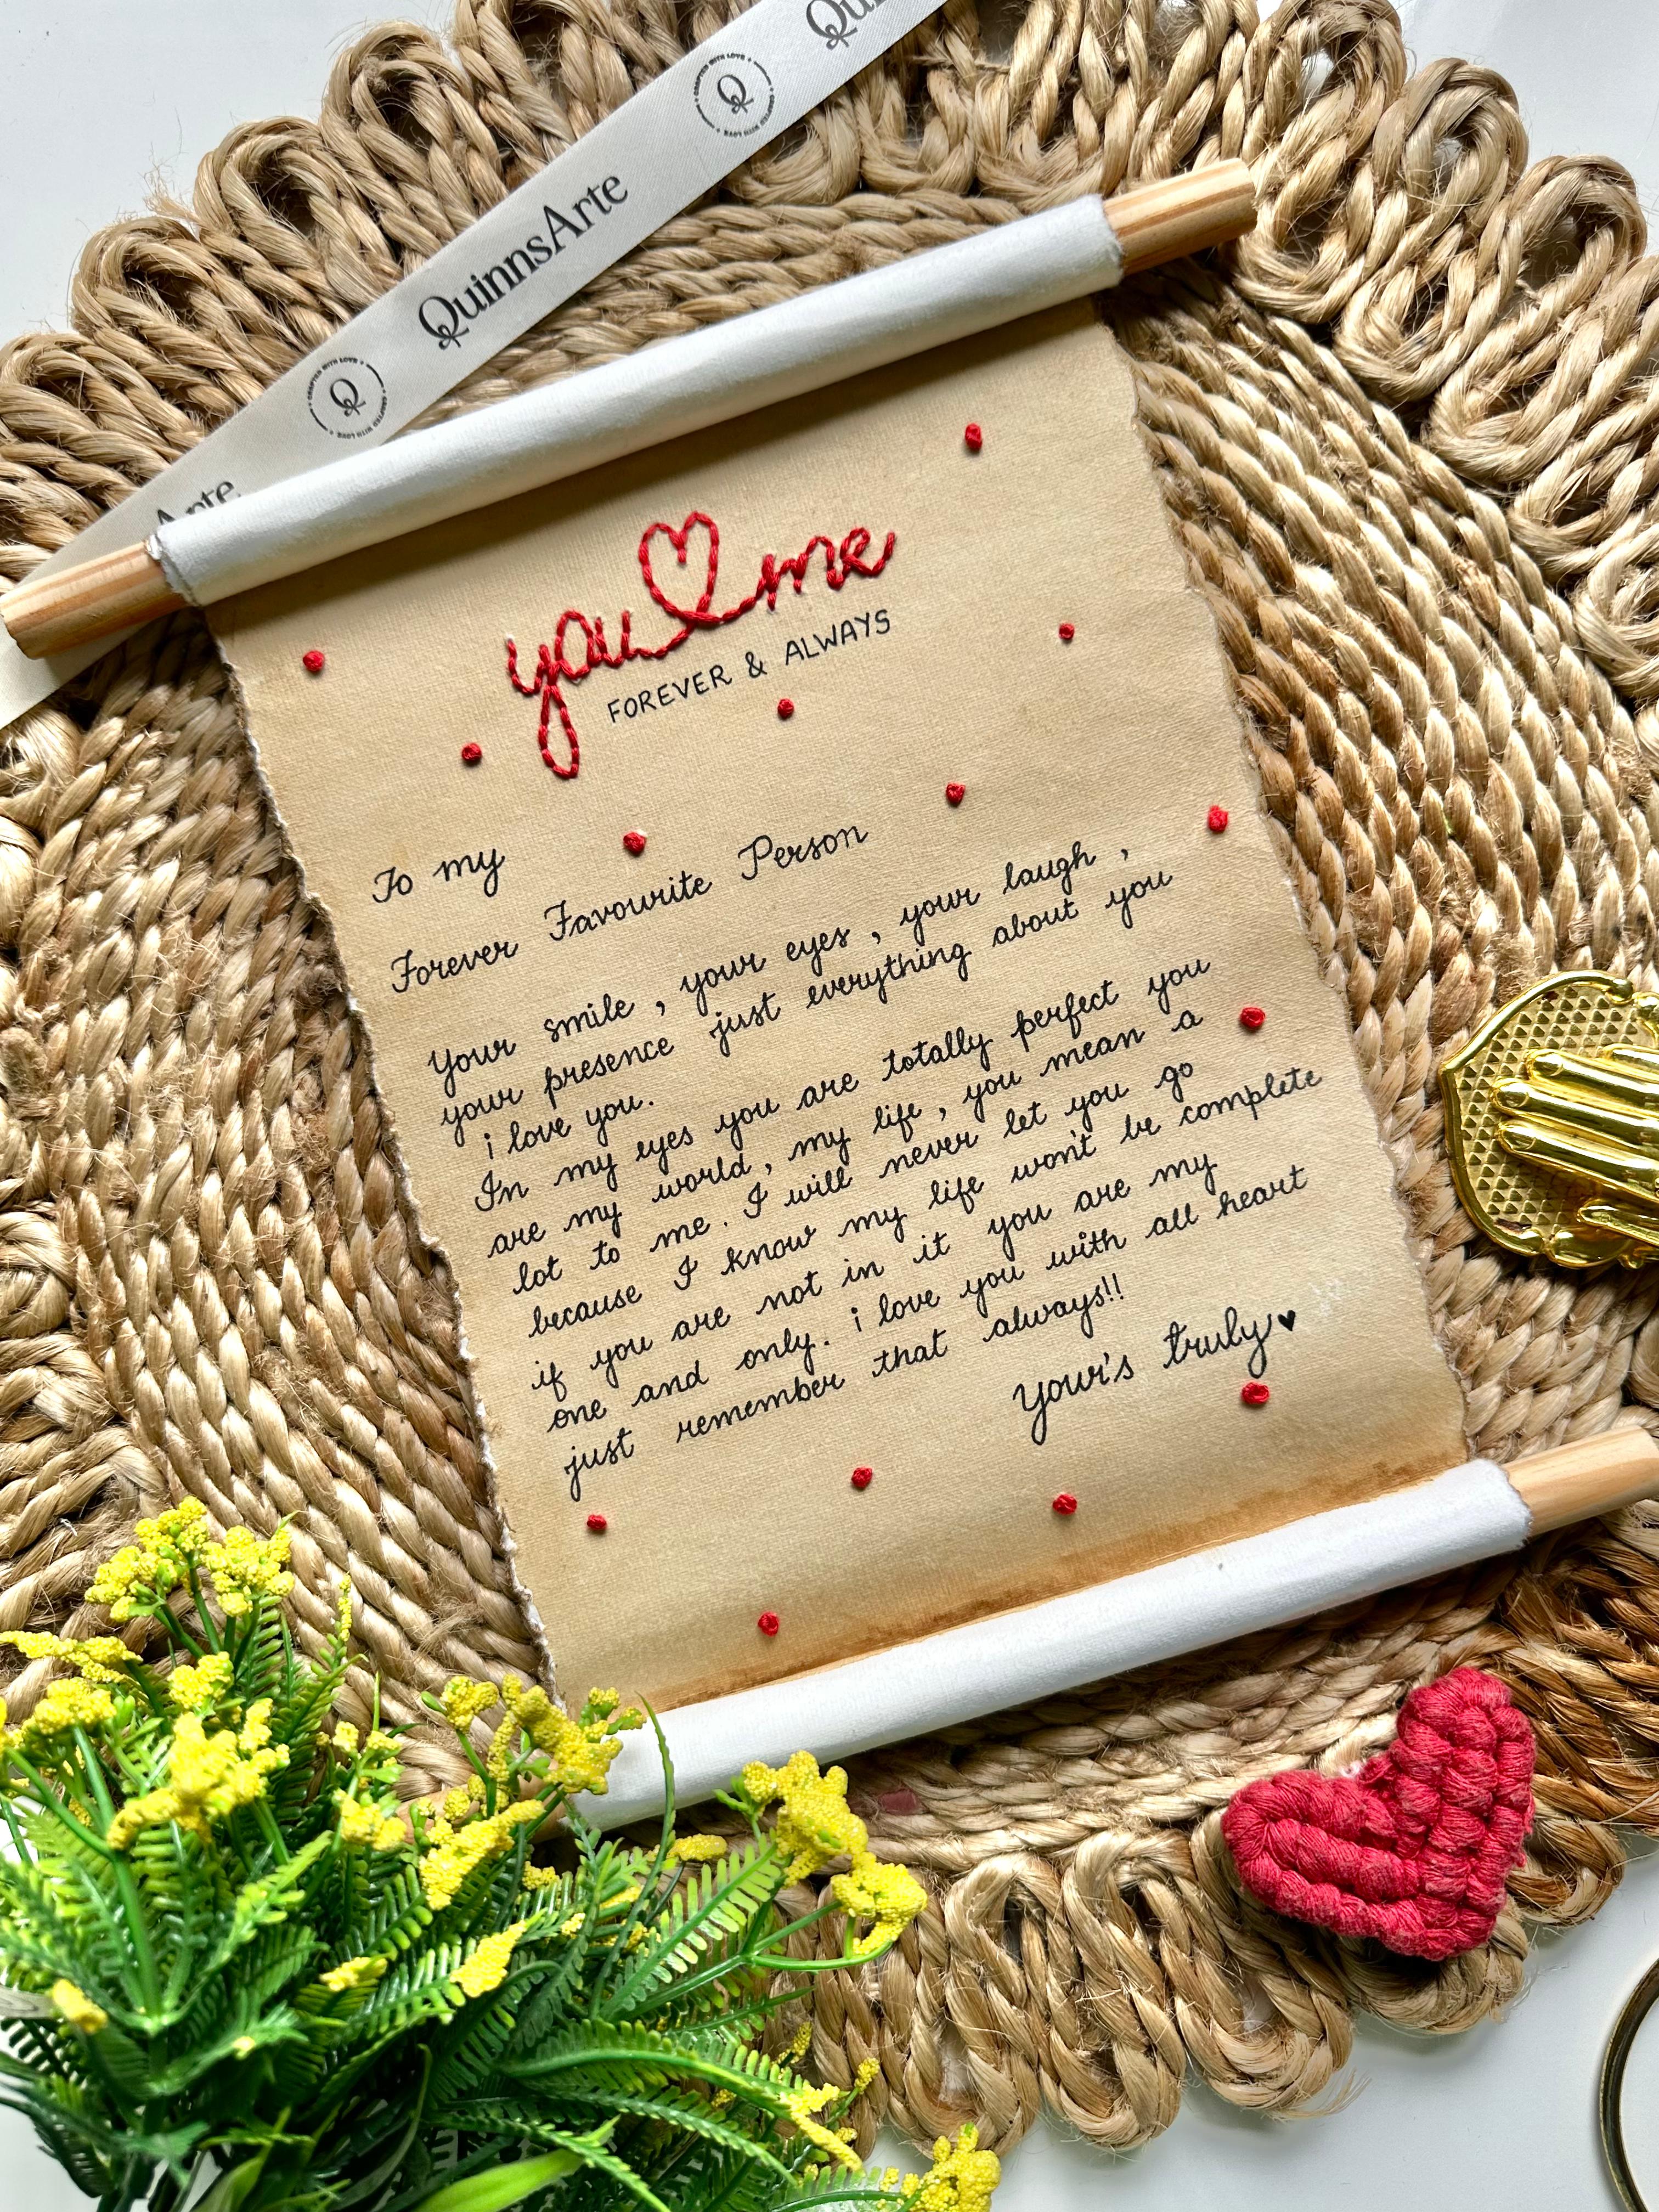 Qui
CRAFTED WITH LOVE • CRAFTED WITH LOVE •
Q
QuinnsArte
CRAFTED WITH LOVE • CRAFTED WITH LOVE •
Q
Arte
you me
FOREVER & ALWAYS
To my
Forever Favourite Person
your smile , your eyes , your laugh ,
your presence just everything about you
i love you.
In my eyes you are totally perfect you
are my world, my life , you mean a
lot to me . I will never let you go
because I know my life won't be complete
if you are not in it you are my
one and only. i love you with all heart
just remember that always!!
your's truly♥